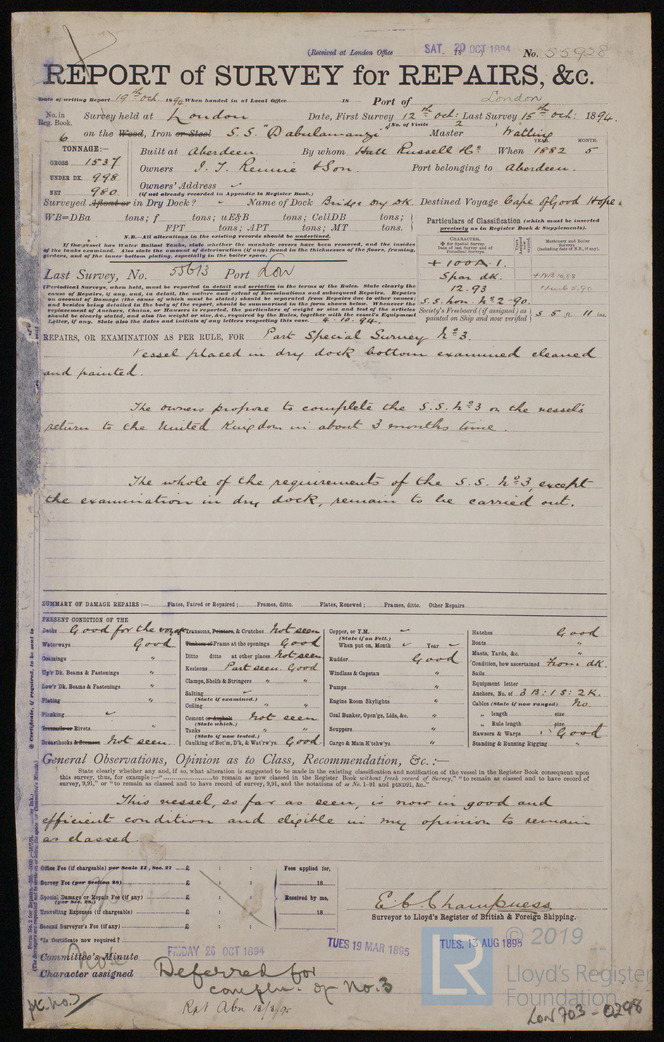 (Received at London Office SAT. 20 OCT 1894 No. 55928
REPORT of SURVEY for REPAIRS, &c.
Date of writing Report 19th Oct. 1894 When handed in at Local Office 18 Port of London
No. in Reg. Book. Survey held at London Date, First Survey 12th Oct: Last Survey 15th Oct: 1894
(No. of Visits 2)
6 on the Wood, Iron or Steel S.S. "Dabulamanzi" Master Watling
TONNAGE:— YEAR. MONTH.
GROSS 1537 Built at Aberdeen. By whom Hall Russell & Co. When 1882 5
UNDER DK. 998 Owners J. T. Rennie & Son. Port belonging to Aberdeen.
NET 980 Owners' Address
(If not already recorded in Appendix to Register Book.)
Surveyed Afloat or in Dry Dock? Name of Dock Bridge Dry Dk. Destined Voyage Cape of Good Hope
WB=DBa tons; f tons; uE&B tons; CellDB tons;
FPT tons; APT tons; MT tons.
Particulars of Classification (which must be inserted precisely as in Register Book & Supplements).
N.B.—All alterations in the existing records should be underlined.
If the vessel has Water Ballast Tanks, state whether the manhole covers have been removed, and the insides of the tanks examined. Also state the amount of deterioration (if any) found in the thickness of the floors, framing, girders, and of the inner bottom plating, especially in the boiler space.
CHARACTER.
+ 100A.1.
Spar dk.
12.93
S.S. Lon. No 2-90.
Last Survey, No. 55613 Port Lon
(Periodical Surveys, when held, must be reported in detail and seriatim in the terms of the Rules. State clearly the cause of Repairs, if any, and, in detail, the nature and extent of Examinations and subsequent Repairs. Repairs on account of Damage (the cause of which must be stated) should be separated from Repairs due to other causes; and besides being detailed in the body of the report, should be summarised in the form shown below. Whenever the replacement of Anchors, Chains, or Hawsers is reported, the particulars of weight or size and test of the articles should be clearly stated, and also the weight or size, &c., required by the Rules, together with the vessel's Equipment Letter, if any. State also the dates and initials of any letters respecting this case. 4.10.94.
Society's Freeboard (if assigned) as painted on Ship and now verified 5 ft. 11 ins.
REPAIRS, OR EXAMINATION AS PER RULE, FOR Part Special Survey No 3.
Vessel placed in dry dock bottom examined cleaned
and painted.
The owners propose to complete the S.S. No 3 on the vessel's
return to the United Kingdom in about 3 months time.
The whole of the requirements of the S.S. No 3, except
the examination in dry dock, remain to be carried out.
SUMMARY OF DAMAGE REPAIRS:— Plates, Faired or Repaired; Frames, ditto. Plates, Renewed; Frames, ditto. Other Repairs
PRESENT CONDITION OF THE
Decks Good for the voyage
Waterways Good
Coamings "
Up'r Dk. Beams & Fastenings "
Low'r Dk. Beams & Fastenings "
Plating "
Planking
Treenails or Rivets "
Breasthooks & Stemson Not seen
Transoms, Pointers, & Crutches Not seen
Timbers or Frame at the openings Good
Ditto ditto at other places Not seen
Keelsons Part seen. Good
Clamps, Shelfs & Stringers " "
Salting
(State if examined.)
Ceiling "
Cement or Asphalt Not seen
(State which.)
Tanks
(State if now tested.)
Caulking of Bot'm, D'k, & Wat'rw'ys Good
Copper, or Y.M.
(State if on Felt.)
When put on, Month Year
Rudder Good
Windlass & Capstan "
Pumps "
Engine Room Skylights "
Coal Bunker, Open'gs, Lids, &c. "
Scuppers "
Cargo & Main H'tchw'ys "
Hatches Good
Boats "
Masts, Yards, &c. "
Condition, how ascertained From dk.
Sails "
Equipment letter
Anchors, No. of 3B: 1S: 2K.
Cables (State if now ranged) No.
" length size
" Rule length size
Hawsers & Warps Good
Standing & Running Rigging "
General Observations, Opinion as to Class, Recommendation, &c.:—
State clearly whether any and, if so, what alteration is suggested to be made in the existing classification and notification of the vessel in the Register Book consequent upon
This vessel, as far as seen, is now in good and
efficient condition and eligible in my opinion to remain
as classed.
Office Fee (if chargeable) per Scale II., Sec. 27 £
Survey Fee (per Section 28) £
Special Damage or Repair Fee (if any) £
(per Sec. 28.)
Travelling Expenses (if chargeable) £
Second Surveyor's Fee (if any) £
Fees applied for,
18
Received by me,
18
E C Champness
Surveyor to Lloyd's Register of British & Foreign Shipping.
*Is Certificate now required?
Committee's Minute FRIDAY 26 OCT 1894 TUES 19 MAR 1895 TUES, 13 AUG 1895
Character assigned Deferred for
compln. of No. 3
Rpt Abn 12/8/95
© 2019
LR
Lloyd's Register
Foundation
Lon 703-0298